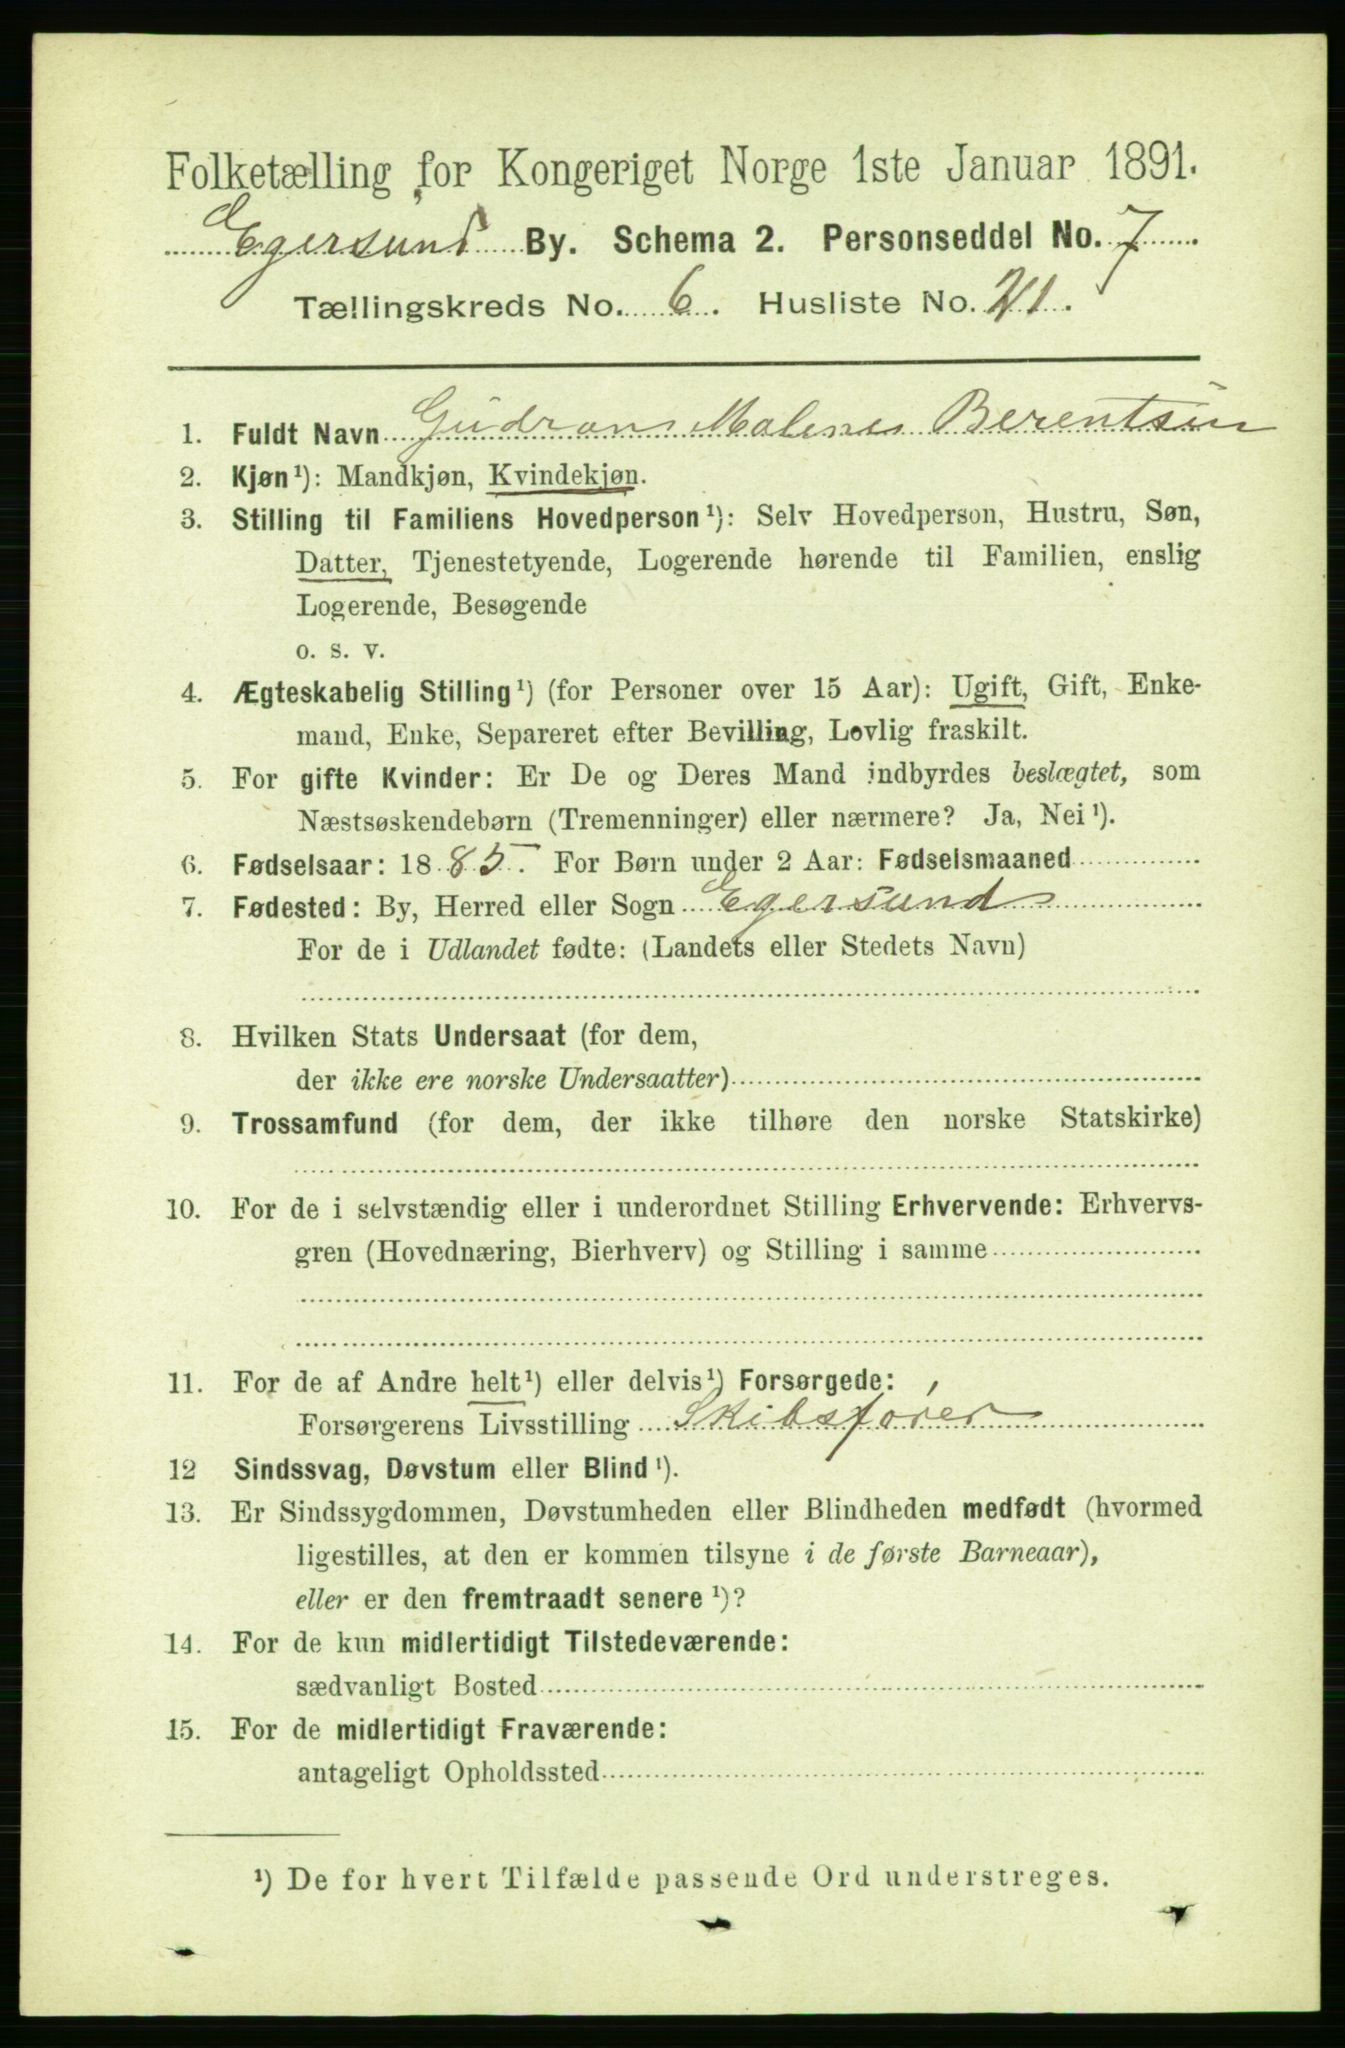 Folketælling for Kongeriget Norge 1ste Januar 1891.
Egersund By. Schema 2. Personseddel No. 7
Tællingskreds No. 6. Husliste No. 21.
1. Fuldt Navn Gudrun Malene Berentsen
2. Kjøn¹): Mandkjøn, Kvindekjøn.
3. Stilling til Familiens Hovedperson¹): Selv Hovedperson, Hustru, Søn,
Datter, Tjenestetyende, Logerende hørende til Familien, enslig
Logerende, Besøgende
o. s. v.
4. Ægteskabelig Stilling¹) (for Personer over 15 Aar): Ugift, Gift, Enke-
mand, Enke, Separeret efter Bevilling, Lovlig fraskilt.
5. For gifte Kvinder: Er De og Deres Mand indbyrdes beslægtet, som
Næstsøskendebørn (Tremenninger) eller nærmere? Ja, Nei¹).
6. Fødselsaar: 1885. For Børn under 2 Aar: Fødselsmaaned
7. Fødested: By, Herred eller Sogn Egersund
For de i Udlandet fødte: (Landets eller Stedets Navn)
8. Hvilken Stats Undersaat (for dem,
der ikke ere norske Undersaatter)
9. Trossamfund (for dem, der ikke tilhøre den norske Statskirke)
10. For de i selvstændig eller i underordnet Stilling Erhvervende: Erhvervs-
gren (Hovednæring, Bierhverv) og Stilling i samme
11. For de af Andre helt¹) eller delvis¹) Forsørgede:
Forsørgerens Livsstilling Skibsfører
12 Sindssvag, Døvstum eller Blind¹).
13. Er Sindssygdommen, Døvstumheden eller Blindheden medfødt (hvormed
ligestilles, at den er kommen tilsyne i de første Barneaar),
eller er den fremtraadt senere¹)?
14. For de kun midlertidigt Tilstedeværende:
sædvanligt Bosted
15. For de midlertidigt Fraværende:
antageligt Opholdssted
¹) De for hvert Tilfælde passende Ord understreges.